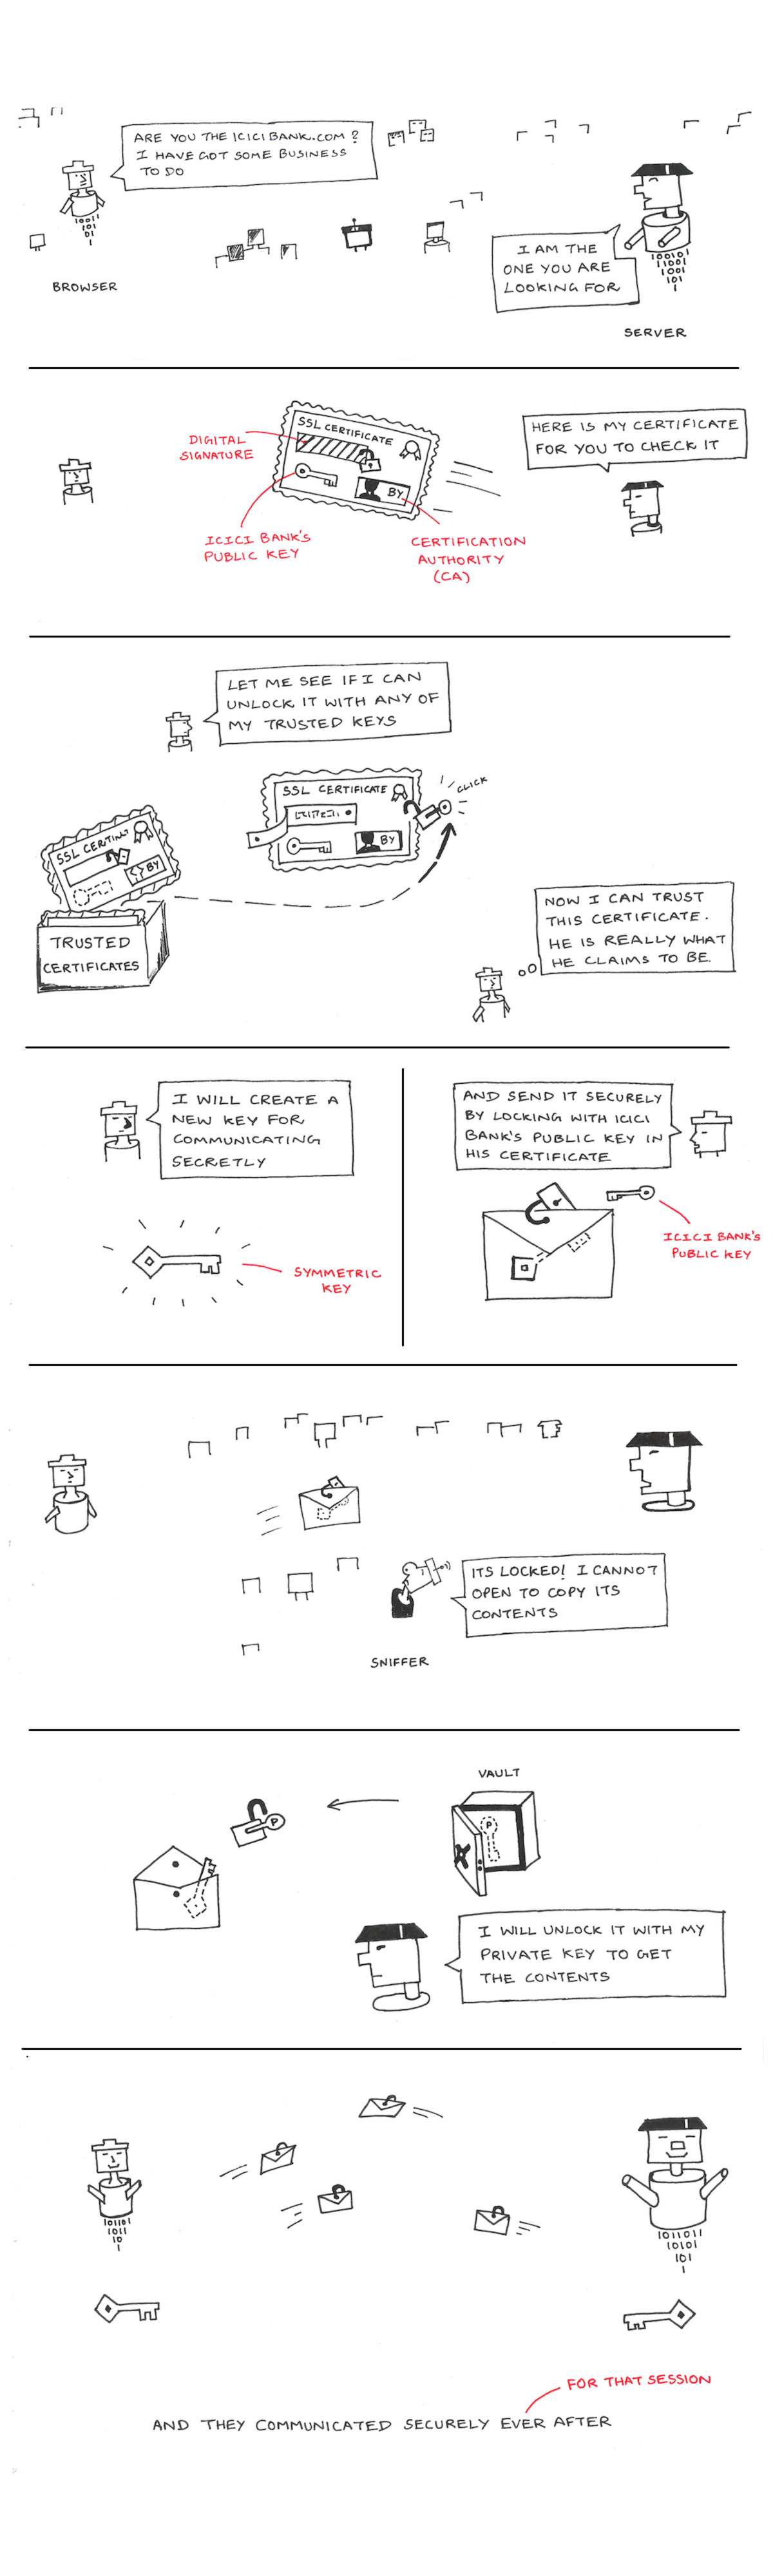 ARE YOU THE ICICIBANK.COM ?
I HAVE GOT SOME BUSINESS
TO DO
10011
101
01
1
BROWSER
I AM THE
ONE YOU ARE
LOOKING FOR
100101
11001
1001
101
1
SERVER
HERE IS MY CERTIFICATE
FOR YOU TO CHECK IT
SSL CERTIFICATE
BY
DIGITAL
SIGNATURE
ICICI BANK'S
PUBLIC KEY
CERTIFICATION
AUTHORITY
(CA)
LET ME SEE IF I CAN
UNLOCK IT WITH ANY OF
MY TRUSTED KEYS
SSL CERTIFICATE
BY
CLICK
BY
TRUSTED
CERTIFICATES
NOW I CAN TRUST
THIS CERTIFICATE.
HE IS REALLY WHAT
HE CLAIMS TO BE.
I WILL CREATE A
NEW KEY FOR
COMMUNICATING
SECRETLY
SYMMETRIC
KEY
AND SEND IT SECURELY
BY LOCKING WITH ICICI
BANK'S PUBLIC KEY IN
HIS CERTIFICATE
ICICI BANK'S
PUBLIC KEY
ITS LOCKED! I CANNOT
OPEN TO COPY ITS
CONTENTS
SNIFFER
VAULT
P
P
I WILL UNLOCK IT WITH MY
PRIVATE KEY TO GET
THE CONTENTS
101101
1011
10
1
1011011
10101
101
1
FOR THAT SESSION
AND THEY COMMUNICATED SECURELY EVER AFTER